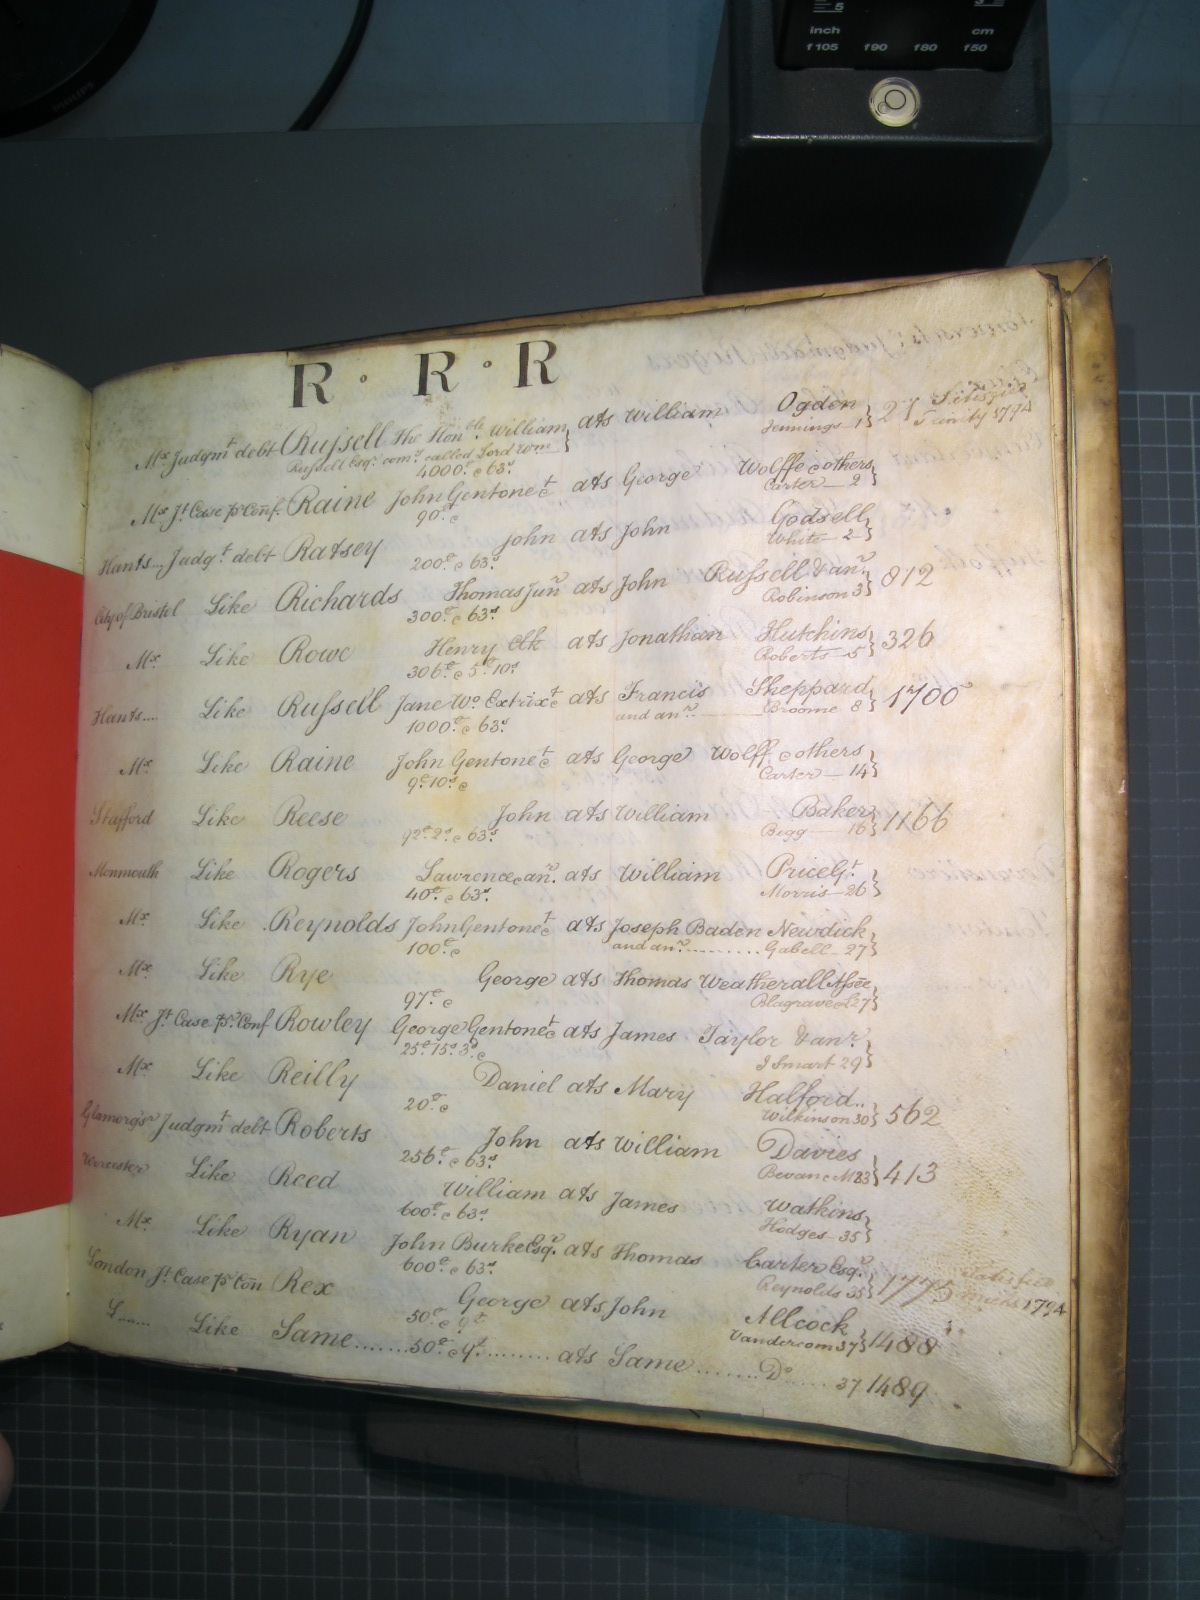 5
inch cm
f105 f90 f80 f50
PHILIPS
R · R · R
Mx. Judgmt debt Russell The Honble. William, ats William Ogden, 27 Satisfied
Russell Esqr. comy. called Lord Wm Jennings 1 Trinity 1794
4000£. e 63s.
Mx Jt Case pr Conf. Raine John Gentone &c ats George Wolffe e others,
90£. e Carter — 2
Hants... Judgt debt Ratsey John ats John Godsell,
200£. e 63s. White 2
City of Bristol Like Richards Thomas Junr ats John Russell & anr. 812
300£. e 63s Robinson 3
Mx. Like Rowe Henry Clk ats Jonathan Hutchins, 326
306£. e 5£ 10s. Roberts 5
Hants.... Like Russell Jane Wo. Extrix &c ats Francis Sheppard, 1700
1000£. e 63s. and anr. Broome 8
Mx. Like Raine John Gentone &c ats George Wolff e others,
9£ 10s. e Carter — 14
Stafford Like Reese John ats William Baker, 1166
92£. 2s. e 63s. Bigg — 16
Monmouth Like Rogers Lawrence e anr. ats William Price Gt.
40£. e 63s. Morris — 26
Mx. Like Reynolds John Gentone &c ats Joseph Baden Newdick,
100£. e and anr. ........ Gabell 27
Mx. Like Rye George ats Thomas Weatherall Assee,
97£. e Blagrave 27
Mx Jt Case pr. Conf Rowley George Gentone &c ats James Taylor & anr.
25£. 15s. 3d. e J Smart 29
Mx Like Reilly Daniel ats Mary Halford.. 562
20£. e Wilkinson 30
Glamorgn Judgmt debt Roberts John ats William Davies 413
256£. e 63s. Bevan 33
Worcester Like Reed William ats James Watkins,
600£. e 63s. Hodges 35
Mx. Like Ryan John Burke Esqr. ats Thomas Carter Esqr. 1775 Satisfied
600£. e 63s. Reynolds 35 1794
London Jt Case pr Con Rex George ats John Allcock, 1488
50£. e 9d. Vandercom 37
L...... Like Same.......50£. e 9d......... ats Same........Do...... 37 1489